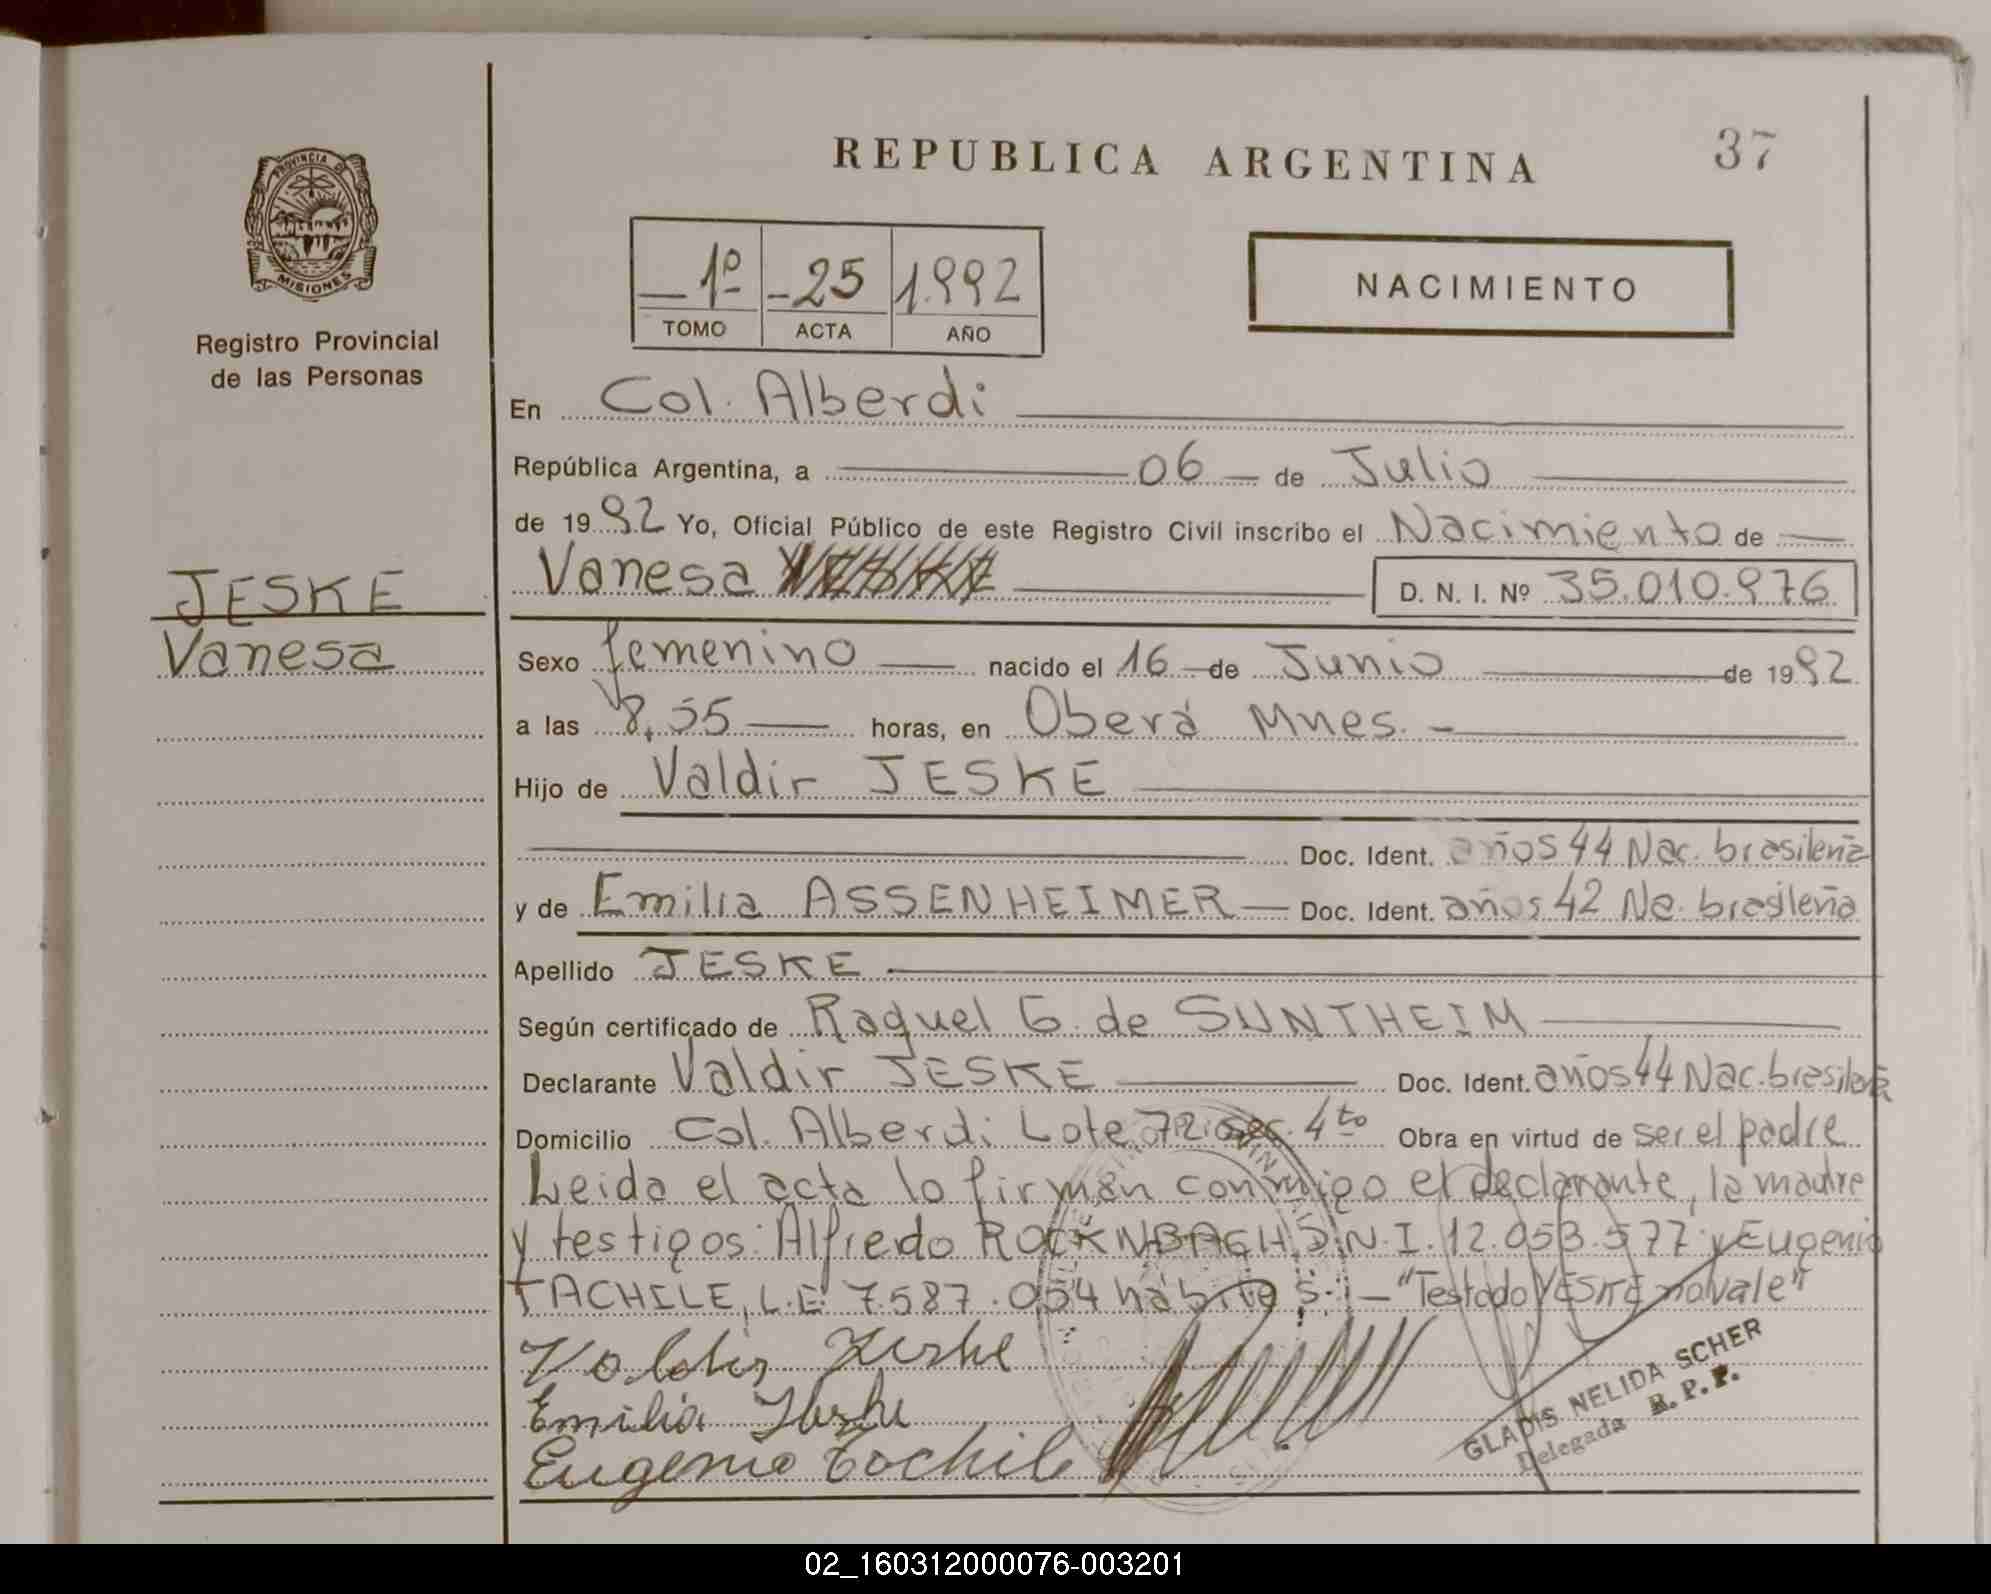 REPUBLICA ARGENTINA
37
PROVINCIA DE
MISIONES
Registro Provincial
de las Personas
1º -25 1.992
TOMO ACTA AÑO
NACIMIENTO
En Col. Alberdi
República Argentina, a 06 de Julio
de 1992 Yo, Oficial Público de este Registro Civil inscribo el Nacimiento de
Vanesa
D. N. I. Nº 35.010.976
JESKE
Vanesa
Sexo femenino nacido el 16 de Junio de 1992
a las 8,55 horas, en Oberá Mnes. -
Hijo de Valdir JESKE
Doc. Ident. años 44 Nac. brasileña
y de Emilia ASSENHEIMER Doc. Ident. años 42 Na. brasileña
Apellido JESKE
Según certificado de Raquel G. de SUNTHEIM
Declarante Valdir JESKE Doc. Ident. años 44 Nac. brasileña
Domicilio Col. Alberdi Lote 72 sec. 4to Obra en virtud de ser el padre
Leida el acta lo firman conmigo el declarante, la madre
y testigos: Alfredo ROCKNBACH D.N.I. 12.053.577 y Eugenio
TACHILE, L.E. 7.587.054 hábiles.- "Testado YESKE no vale"
Valdir Jeske
Emilia Jeske
Eugenio Tachile
GLADIS NELIDA SCHER
Delegada R. P. P.
02_160312000076-003201